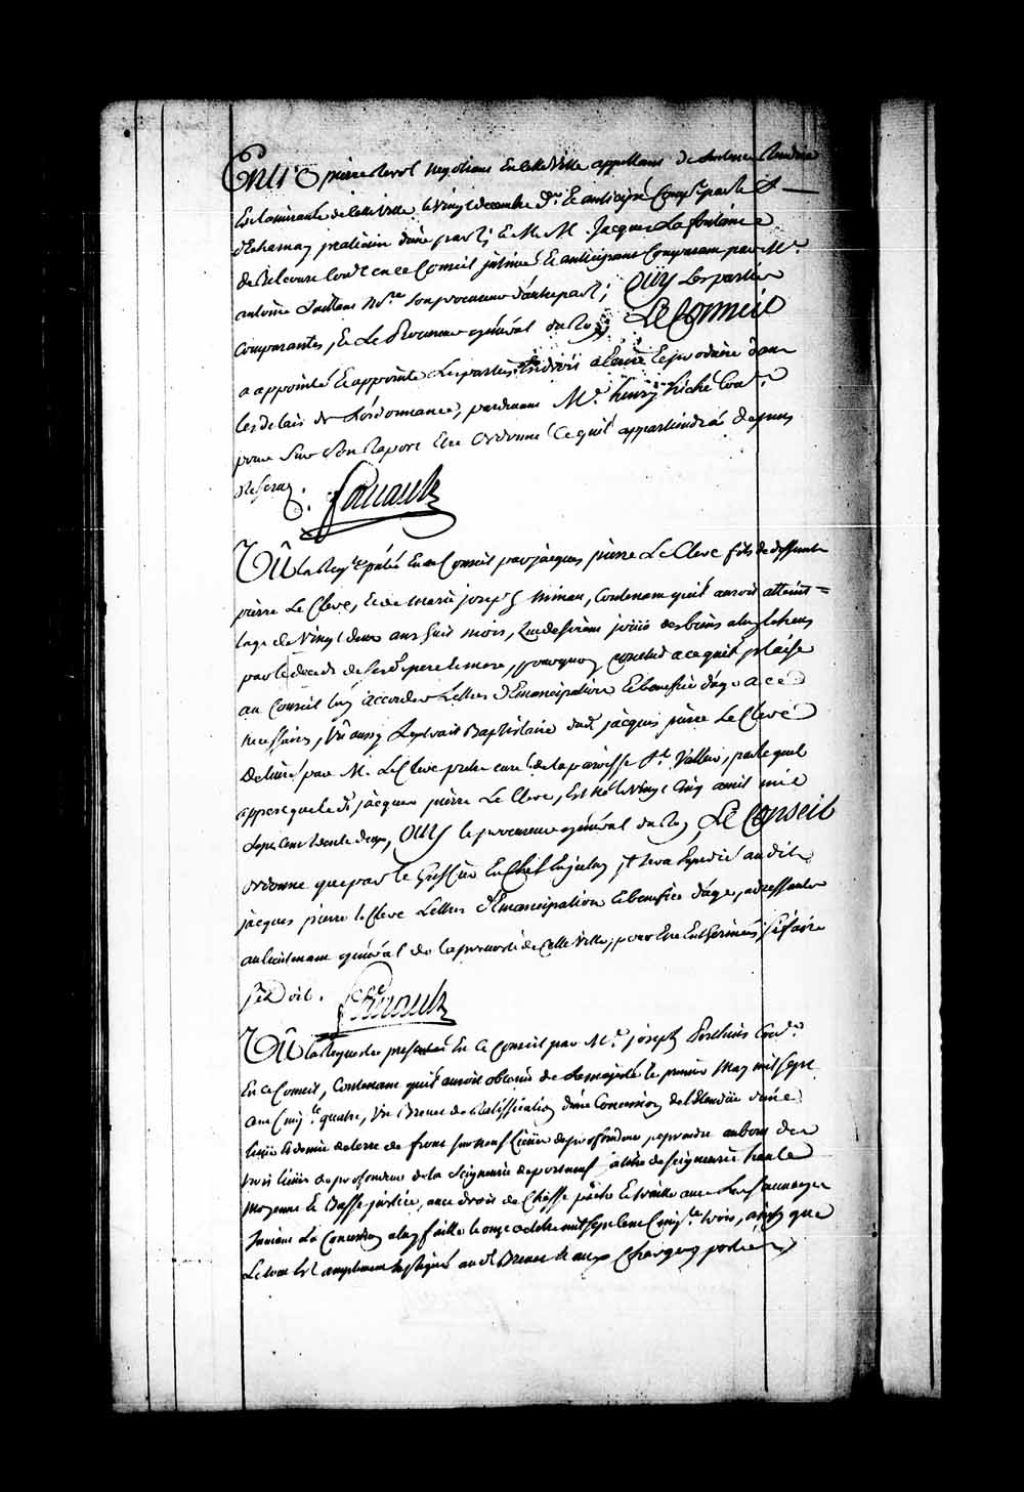 Entre pierre Revol Negotiant En cette Ville appellant de Sentence Rendue
En Lamirauté de cette Ville le Vingt decembre dr. Et anticipé Comp.t par le S.r
dEcharnay praticien d'une part; Et M.e M. Jacques Lafontaine
de Belcour Con.er en ce Conseil intimé Et anticipant Comparant par M.e
antoine Saillant No.re son procureur d'autre part; Ouy Les parties
Comparantes, Et Le Procureur général du Roy, Le Conseil
a appointé Et appointe Les parties En droit a Ecrire Et produire dans
les delais de Lordonnance, pardevant M.e henry hiché Con.er
pour Sur Son Raport Etre Ordonné Ce quil appartiendra depens
Reservez.
Foucault
Vû la Req.te p.ntée En ce Conseil par jacques pierre Le Clerc fils de deffunts
pierre Le Clerc, Et de Marie joseph Minau, Contenant quil auroit atteint
lage de Vingt deux ans huit mois, Et desireroit jouir des biens a luy Echeus
par le deceds de Sesd. pere Et mere, pourquoy conclud a ce quil plaise
au Conseil luy accorder Lettres d'Emancipation Et benefice d'age a ce
necessaires, Vû aussy Lextrait Baptistaire dud. jacques pierre Le Clerc
Delivré par M. Le Clerc prêtre curé de la paroisse S.t Vallier, par lequel
appert que led. jacques pierre Le Clerc, Est né le Vingt Cinq avril mil
Sept Cent trente deux, Ouy le procureur général du Roy, Le Conseil
ordonne que par le Greffier En Chef En jceluy jl sera Expedié audit
jacques pierre le Clerc Lettres d'Emancipation Et benefice d'age, adressantes
au lieutenant général de la prevosté de Cette Ville, pour Etre Entherinées Si faire
Se Doit.
Foucault
Vû la Requeste presentée En Ce Conseil par M.e joseph Perthuis Con.er
En ce Conseil, Contenant quil auroit obtenu de Sa majesté le premier May mil Sept
Cent Cinq.te quatre, Un Brevet de Ratiffication d'une Concession de l'Etendüe d'une
lieüe Et demie de terre de front Sur neuf lieües de profondeur a prendre au bout des
trois lieües de profondeur de la Seigneurie de portneuf a titre de Seigneurie haute
moyenne Et Basse justice, avec droit de Chasse pêche Et traitte avec les Sauvages
Suivant La Concession a luy faitte le onze octobre mil sept cent Cinq.te trois, ainsy que
Le tout Est amplement Expliqué aud. Brevet Et aux Charges y portées,